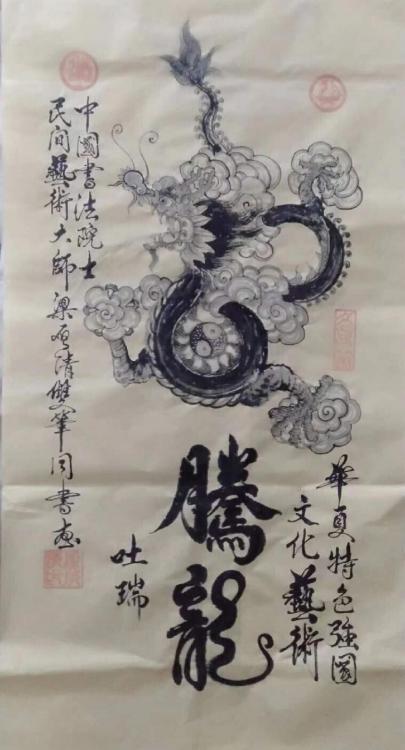 華夏特色強國
文化藝術
騰龍
吐瑞
中國書法院士
民间藝術大師梁雙筆同書画